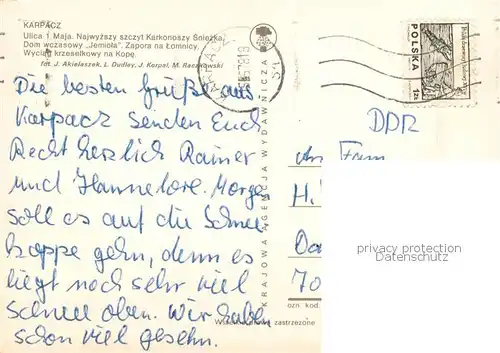 KARPACZ
Ulica 1 Maja. Najwyższy szczyt Karkonoszy Śnieżka.
Dom wczasowy „Jemioła". Zapora na Łomnicy.
Wyciąg krzesełkowy na Kopę.
fot. J. Akielaszek, L. Dudley, J. Korpal, M. Raczkowski
KARPACZ
POLSKA
1zł
DDR
Die besten Grüße aus
Karpacz senden Euch
Recht herzlich Rainer
und Hannelore. Morgen
soll es auf die Schnee
koppe gehn, denn es
liegt noch sehr viel
Schnee oben. Wir haben
schon viel gesehn.
KRAJOWA AGENCJA WYDAWNICZA
An Fam
H.
70
ozn kod.
zastrzeżone
privacy protection
Datenschutz